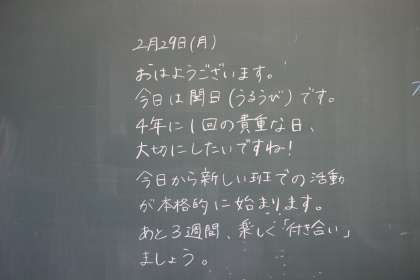 2月29日(月)
おはようございます。
今日は閏日(うるうび)です。
4年に1回の貴重な日、
大切にしたいですね!
今日から新しい班での活動
が本格的に始まります。
あと3週間、楽しく「付き合い」
ましょう。